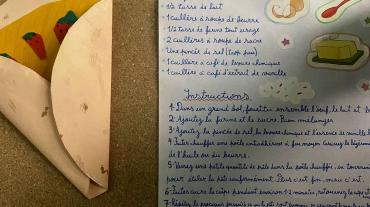 - 1/2 tasse de lait
- 1 cuillère à soupe de beurre
- 1/2 tasse de farine tout usage
- 2 cuillères à soupe de sucre
- Une pincée de sel (trop peu)
- 1 cuillère à café de levure chimique
- 1 cuillère à café d'extrait de vanille
Instructions
1. Dans un grand bol, fouettez ensemble l'œuf, le lait et
2. Ajoutez la farine et le sucre. Bien mélanger.
3. Ajoutez la pincée de sel, la levure chimique et l'essence de vanille
4. Faites chauffer une poêle antiadhésive à feu moyen
de l'huile ou du beurre.
5. Versez une petite quantité de pâte dans la poêle chauffée, en tournant
pour étaler la pâte uniformément. Plus c'est fin, mieu c'est.
6. Faites cuire la crêpe pendant environ 1-2 minutes, retournez
7. Répétez le processus